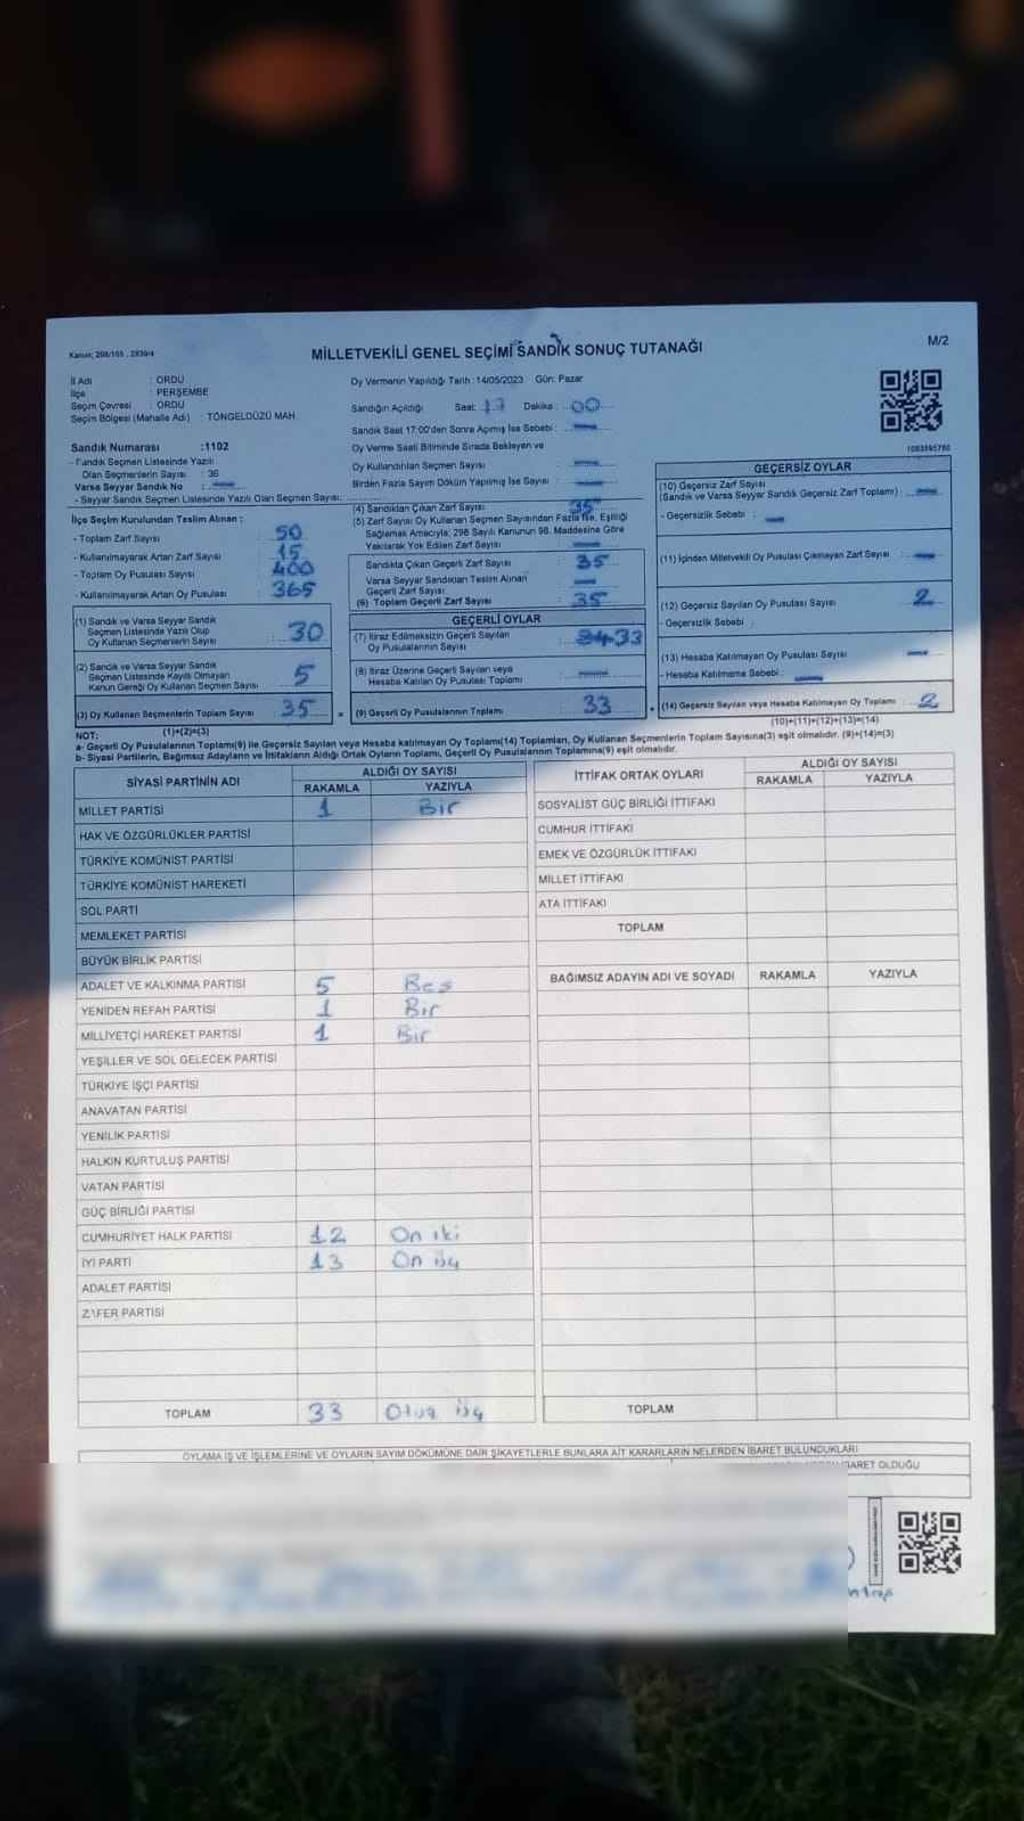 Kanun; 298/105 , 2839/4
MİLLETVEKİLİ GENEL SEÇİMİ SANDIK SONUÇ TUTANAĞI
M/2
İl Adı : ORDU
İlçe : PERŞEMBE
Seçim Çevresi : ORDU
Seçim Bölgesi (Mahalle Adı) : TÖNGELDÜZÜ MAH.
Sandık Numarası :1102
- Sandık Seçmen Listesinde Yazılı
Olan Seçmenlerin Sayısı : 36
Varsa Seyyar Sandık No : —
- Seyyar Sandık Seçmen Listesinde Yazılı Olan Seçmen Sayısı:
Oy Vermenin Yapıldığı Tarih : 14/05/2023 Gün: Pazar
Sandığın Açıldığı Saat: 17 Dakika : 00
Sandık Saat 17:00'den Sonra Açılmış İse Sebebi : —
Oy Verme Saati Bitiminde Sırada Bekleyen ve
Oy Kullandırılan Seçmen Sayısı : —
Birden Fazla Sayım Döküm Yapılmış İse Sayısı : —
İlçe Seçim Kurulundan Teslim Alınan :
- Toplam Zarf Sayısı : 50
- Kullanılmayarak Artan Zarf Sayısı : 15
- Toplam Oy Pusulası Sayısı : 400
- Kullanılmayarak Artan Oy Pusulası : 365
(1) Sandık ve Varsa Seyyar Sandık
Seçmen Listesinde Yazılı Olup
Oy Kullanan Seçmenlerin Sayısı : 30
(2) Sandık ve Varsa Seyyar Sandık
Seçmen Listesinde Kayıtlı Olmayan
Kanun Gereği Oy Kullanan Seçmen Sayısı : 5
(3) Oy Kullanan Seçmenlerin Toplam Sayısı : 35
(1)+(2)=(3)
(4) Sandıktan Çıkan Zarf Sayısı : 35
(5) Zarf Sayısı Oy Kullanan Seçmen Sayısından Fazla İse, Eşitliği
Sağlamak Amacıyla; 298 Sayılı Kanunun 98. Maddesine Göre
Yakılarak Yok Edilen Zarf Sayısı : —
Sandıkta Çıkan Geçerli Zarf Sayısı : 35
Varsa Seyyar Sandıktan Teslim Alınan
Geçerli Zarf Sayısı : —
(6) Toplam Geçerli Zarf Sayısı : 35
GEÇERLİ OYLAR
(7) İtiraz Edilmeksizin Geçerli Sayılan
Oy Pusulalarının Sayısı : 34 33
(8) İtiraz Üzerine Geçerli Sayılan veya
Hesaba Katılan Oy Pusulası Toplamı : —
= (9) Geçerli Oy Pusulalarının Toplamı : 33
1083395760
GEÇERSİZ OYLAR
(10) Geçersiz Zarf Sayısı
(Sandık ve Varsa Seyyar Sandık Geçersiz Zarf Toplamı) : —
- Geçersizlik Sebebi : —
(11) İçinden Milletvekili Oy Pusulası Çıkmayan Zarf Sayısı : —
(12) Geçersiz Sayılan Oy Pusulası Sayısı : 2
- Geçersizlik Sebebi :
(13) Hesaba Katılmayan Oy Pusulası Sayısı : —
- Hesaba Katılmama Sebebi : —
+ (14) Geçersiz Sayılan veya Hesaba Katılmayan Oy Toplamı : 2
(10)+(11)+(12)+(13)=(14)
NOT:
a- Geçerli Oy Pusulalarının Toplamı(9) ile Geçersiz Sayılan veya Hesaba katılmayan Oy Toplamı(14) Toplamları, Oy Kullanan Seçmenlerin Toplam Sayısına(3) eşit olmalıdır. (9)+(14)=(3)
b- Siyasi Partilerin, Bağımsız Adayların ve İttifakların Aldığı Ortak Oyların Toplamı, Geçerli Oy Pusulalarının Toplamına(9) eşit olmalıdır.
SİYASİ PARTİNİN ADI ALDIĞI OY SAYISI
RAKAMLA YAZIYLA
MİLLET PARTİSİ 1 Bir
HAK VE ÖZGÜRLÜKLER PARTİSİ
TÜRKİYE KOMÜNİST PARTİSİ
TÜRKİYE KOMÜNİST HAREKETİ
SOL PARTİ
MEMLEKET PARTİSİ
BÜYÜK BİRLİK PARTİSİ
ADALET VE KALKINMA PARTİSİ 5 Beş
YENİDEN REFAH PARTİSİ 1 Bir
MİLLİYETÇİ HAREKET PARTİSİ 1 Bir
YEŞİLLER VE SOL GELECEK PARTİSİ
TÜRKİYE İŞÇİ PARTİSİ
ANAVATAN PARTİSİ
YENİLİK PARTİSİ
HALKIN KURTULUŞ PARTİSİ
VATAN PARTİSİ
GÜÇ BİRLİĞİ PARTİSİ
CUMHURİYET HALK PARTİSİ 12 On iki
İYİ PARTİ 13 On üç
ADALET PARTİSİ
ZAFER PARTİSİ
TOPLAM 33 Otuz üç
İTTİFAK ORTAK OYLARI ALDIĞI OY SAYISI
RAKAMLA YAZIYLA
SOSYALİST GÜÇ BİRLİĞİ İTTİFAKI
CUMHUR İTTİFAKI
EMEK VE ÖZGÜRLÜK İTTİFAKI
MİLLET İTTİFAKI
ATA İTTİFAKI
TOPLAM
BAĞIMSIZ ADAYIN ADI VE SOYADI RAKAMLA YAZIYLA
TOPLAM
OYLAMA İŞ VE İŞLEMLERİNE VE OYLARIN SAYIM DÖKÜMÜNE DAİR ŞİKAYETLERLE BUNLARA AİT KARARLARIN NELERDEN İBARET BULUNDUKLARI
İBARET OLDUĞU